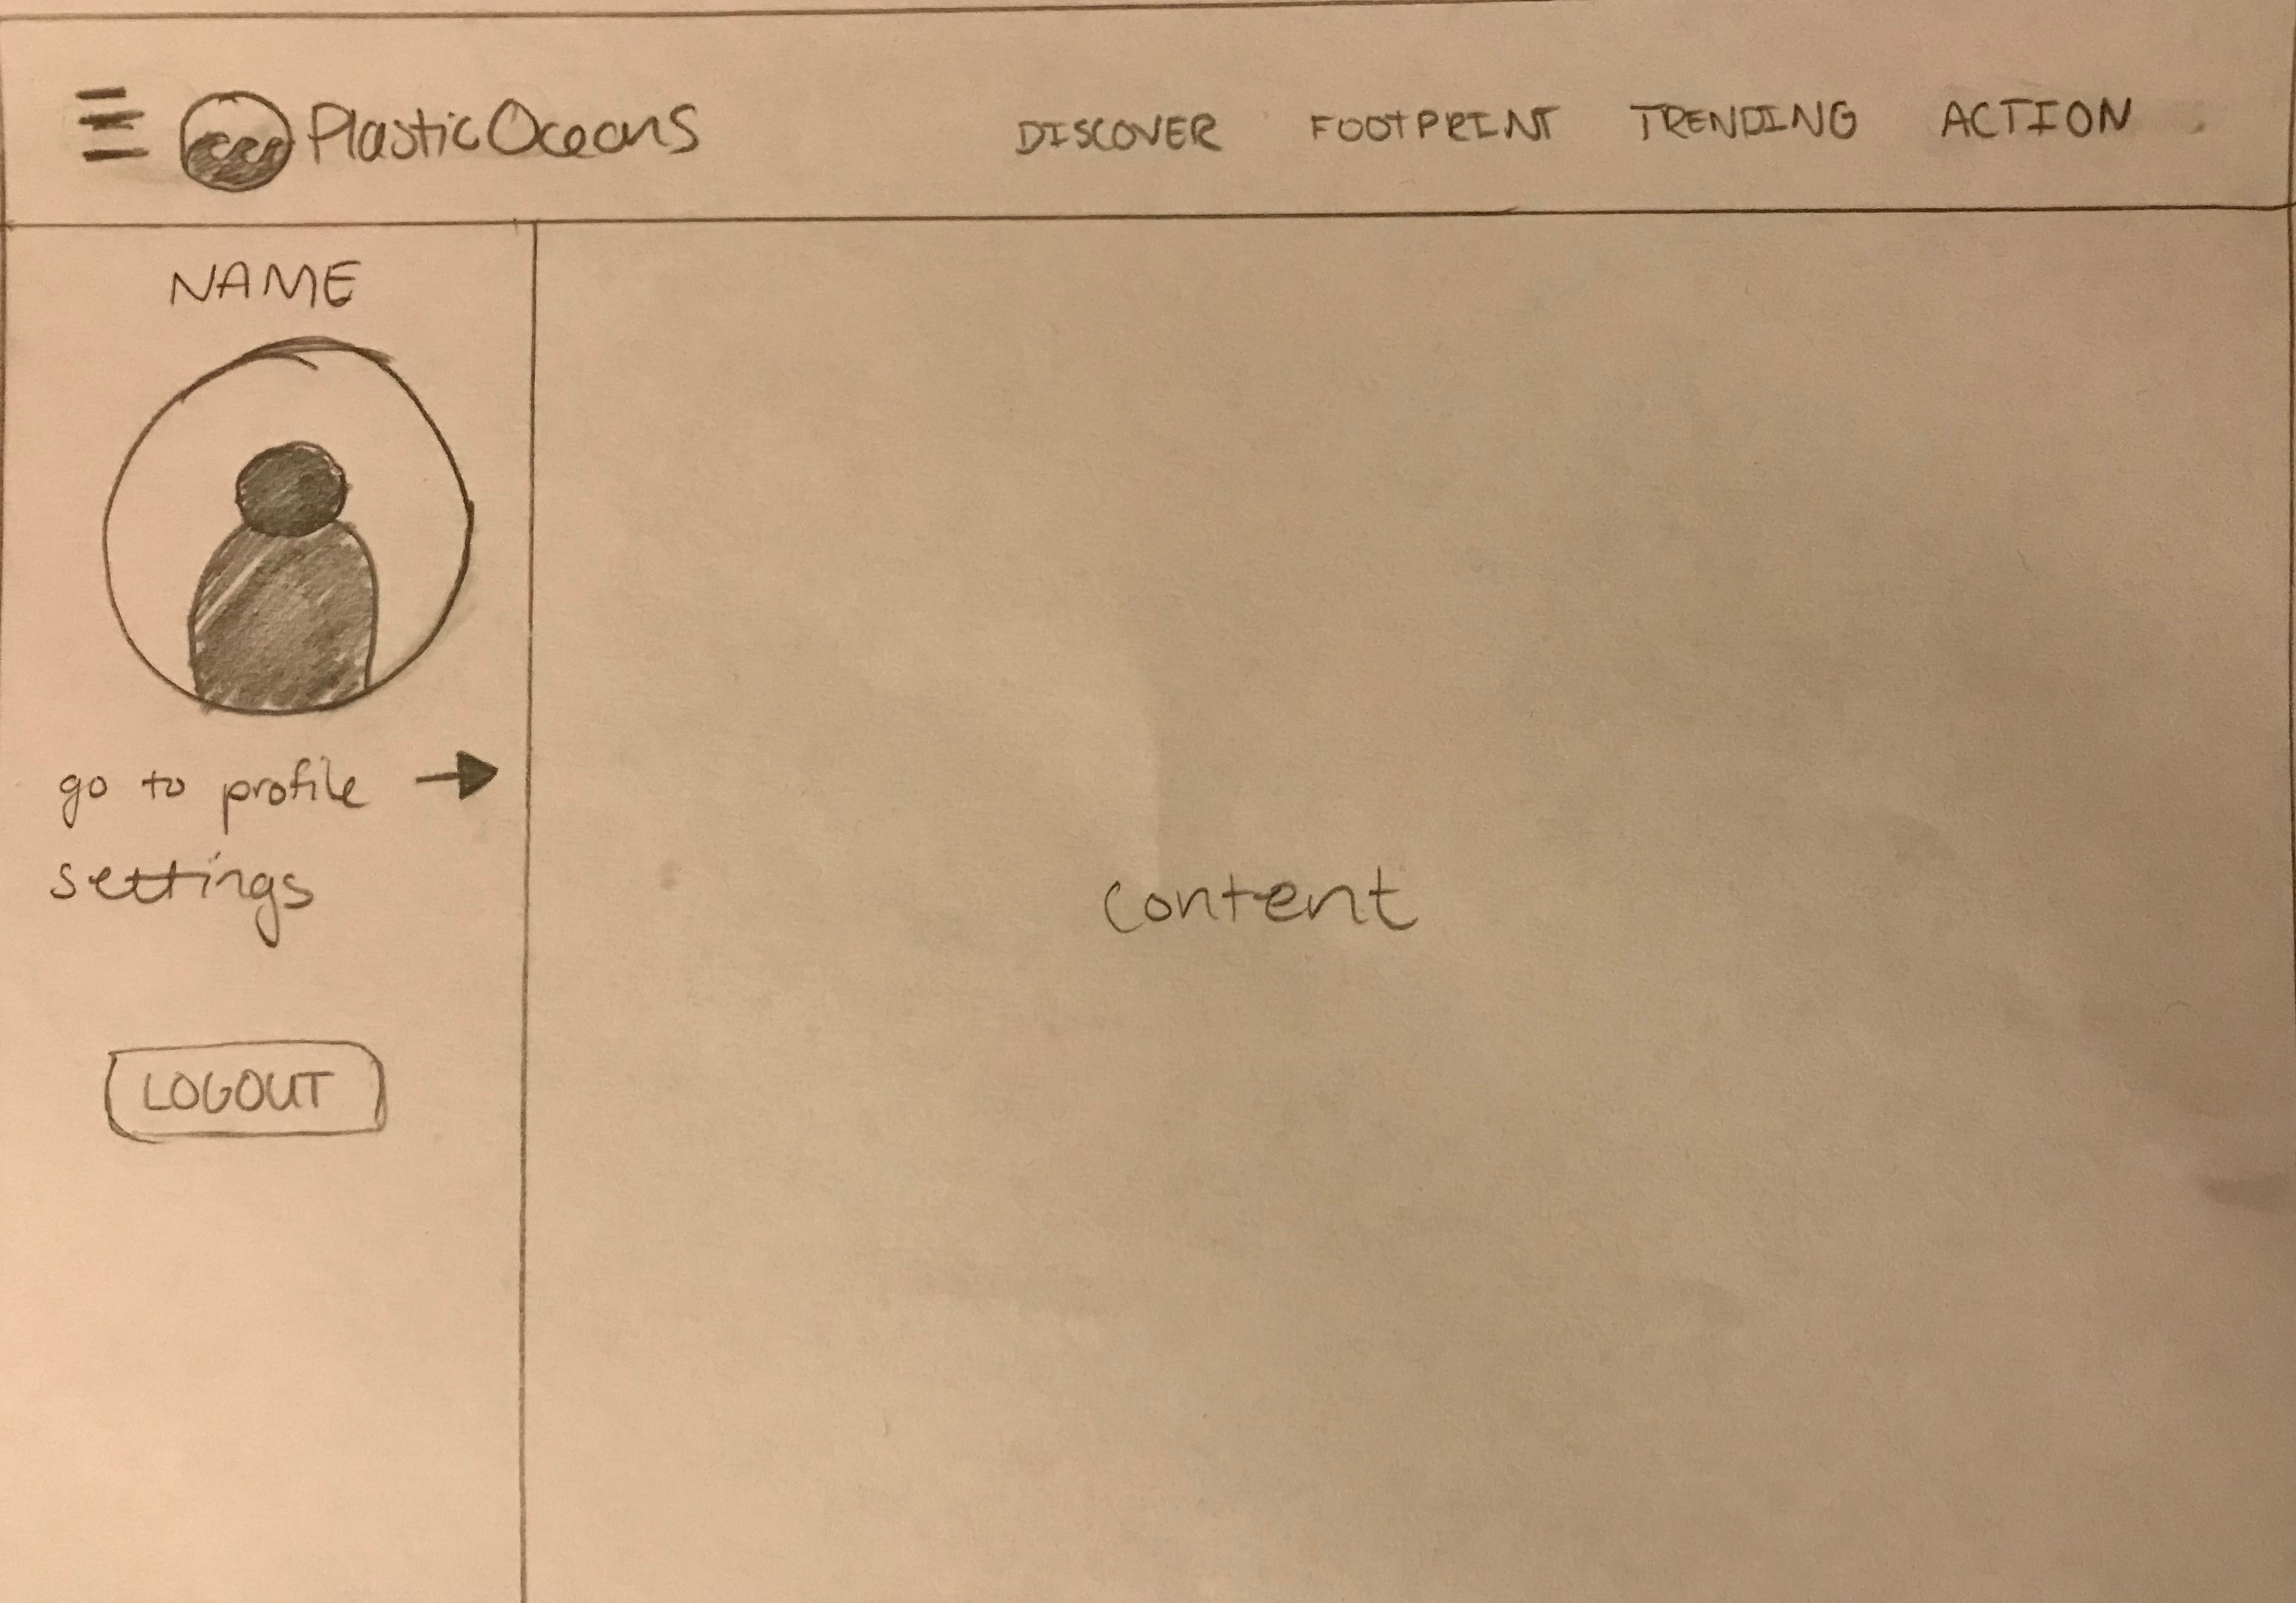 PlasticOceans DISCOVER FOOTPRINT TRENDING ACTION
NAME
go to profile
settings
content
LOGOUT